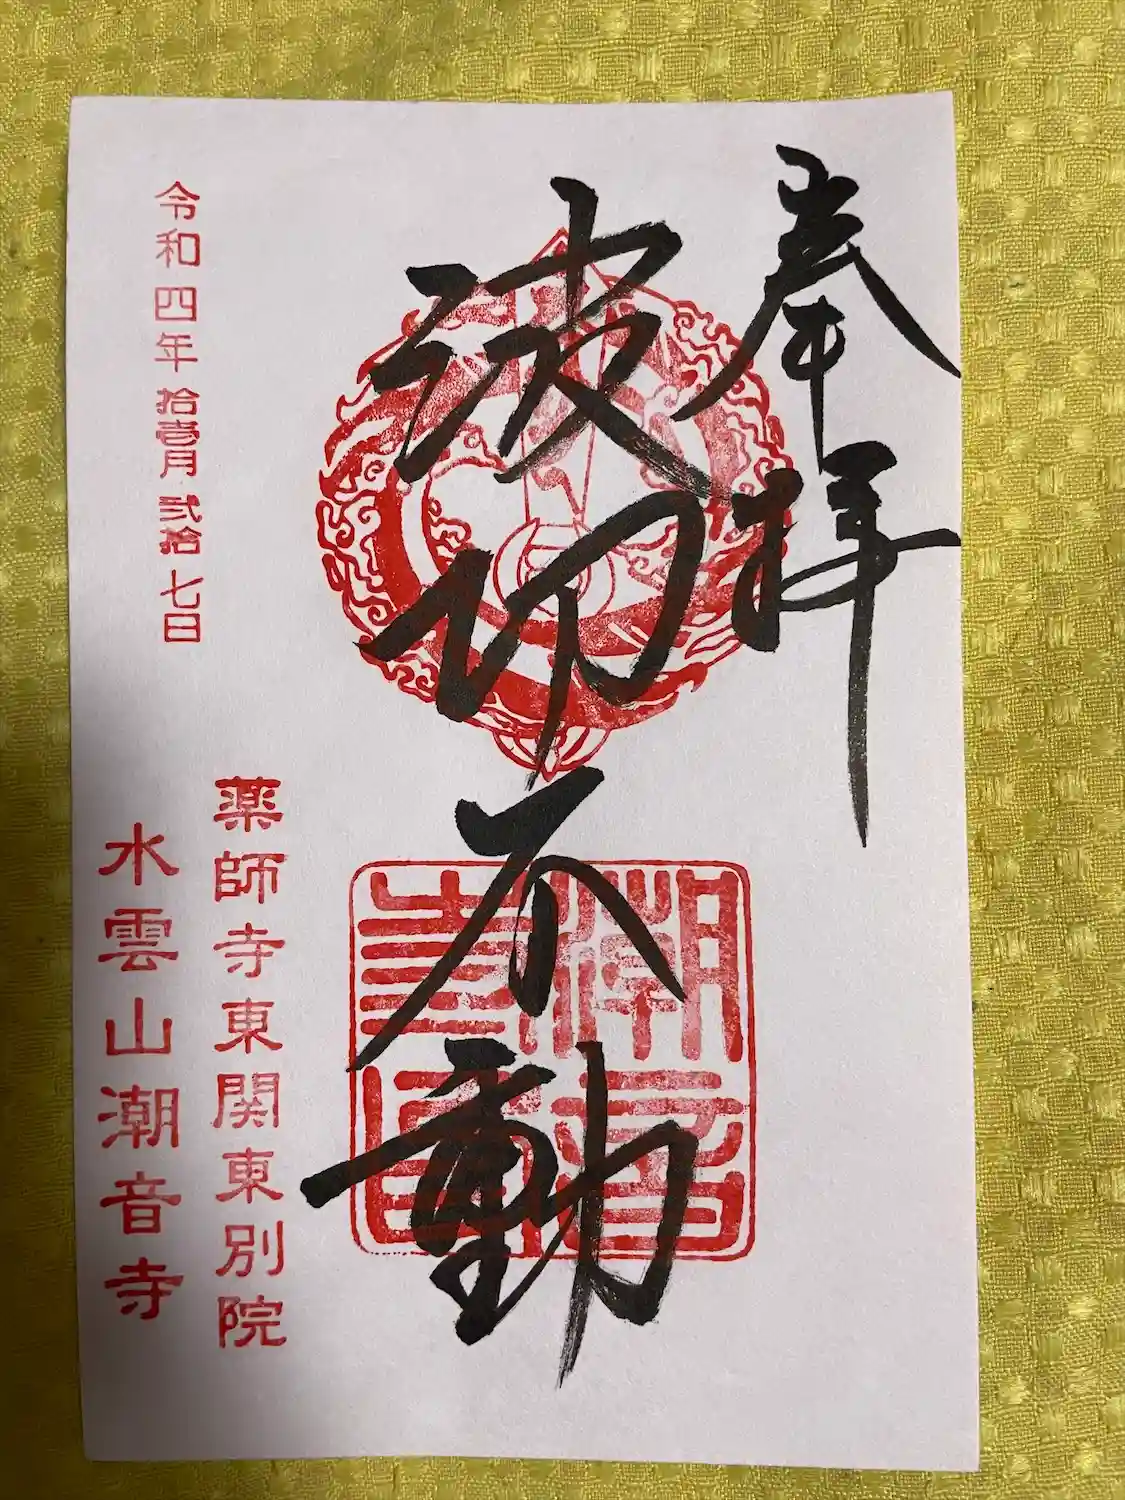 奉拝
波切不動
潮音
寺印
薬師寺東関東別院
水雲山潮音寺
令和四年拾壹月貳拾七日